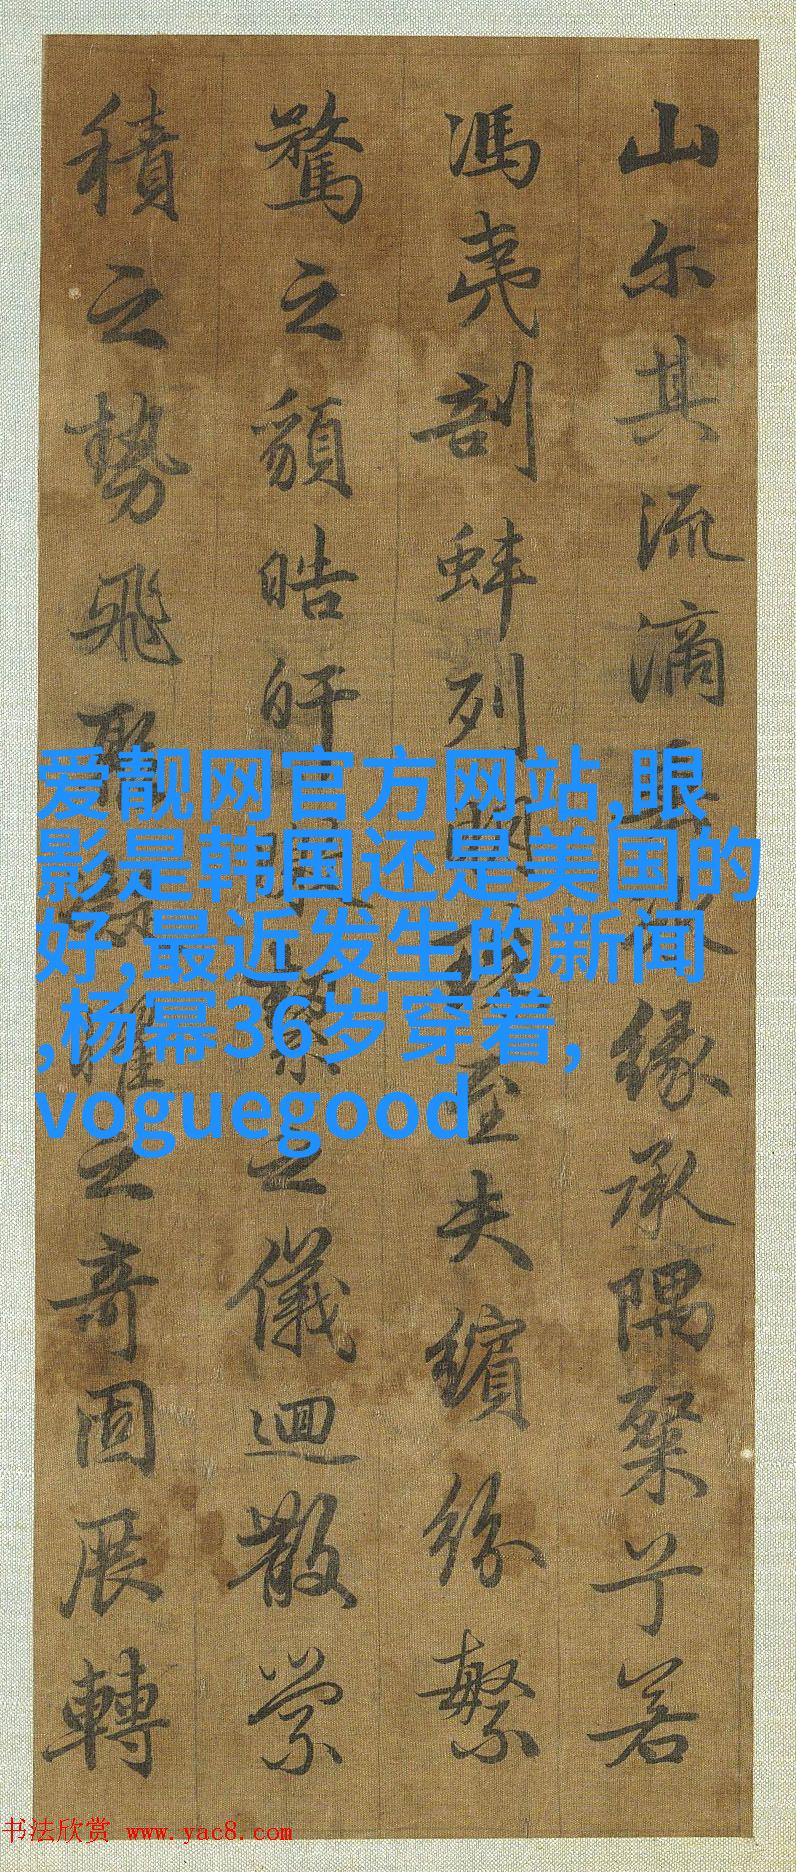 山尔其流滴缘承隅粲兮若
馮夷剖蚌列至夫繽紛繁
驁之貌皓皔之儀迴散縈
積之勢飛聚曜之奇固展轉
爱靓网官方网站,眼
影是韩国还是美国的
好,最近发生的新闻
,杨幂36岁穿着,
voguegood
书法欣赏 www.yac8.com